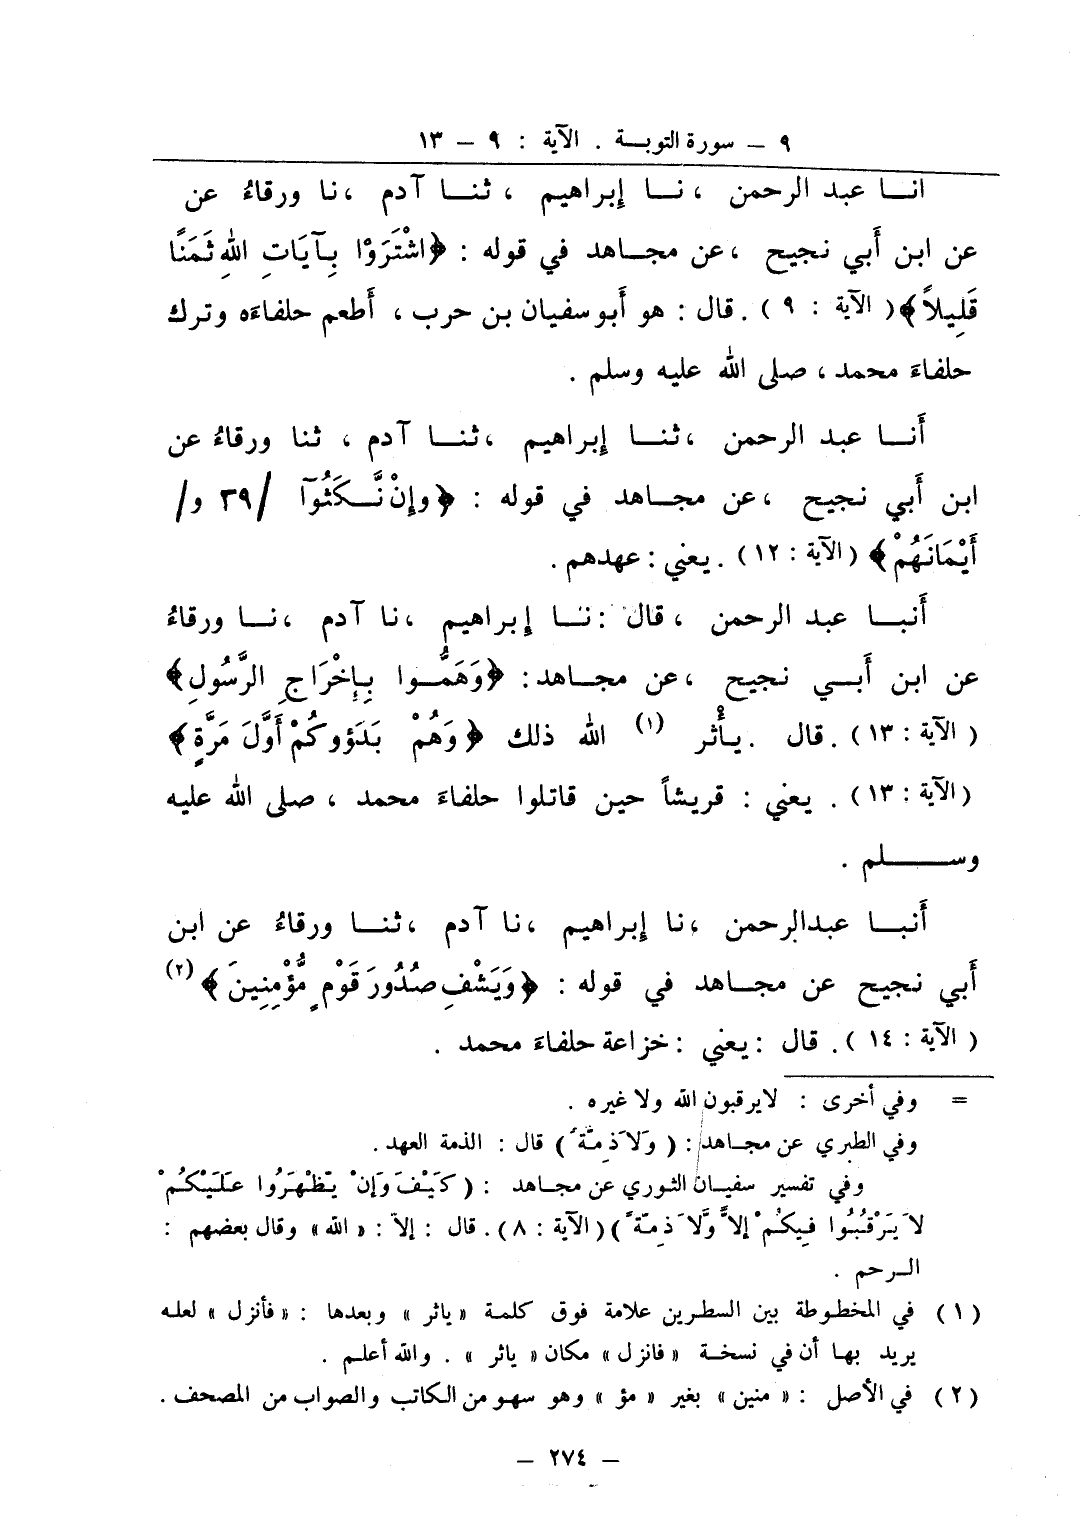 ٩ – سورة التوبـة . الآية : ٩ – ١٣
انـا عبد الرحمن ، نـا إبراهيم ، ثنـا آدم ، نا ورقاءُ عن
عن ابن أَبي نجيح ، عن مجـاهد في قوله : ﴿اشْتَرَوْا بِآيَاتِ اللهِ ثَمَنًا
قَلِيلاً﴾ ( الآية : ٩ ) . قال : هو أَبو سفيان بن حرب ، أَطعم حلفاءَه وترك
حلفاءَ محمد ، صلى الله عليه وسلم .
أَنـا عبد الرحمن ، ثنـا إبراهيم ، ثنـا آدم ، ثنا ورقاءُ عن
ابن أَبي نجيح ، عن مجـاهد في قوله : ﴿وإِنْ نَّـكَثُوٓا /٣٩ و/
أَيْمَانَهُمْ﴾ (الآية : ١٢) . يعني : عهدهم .
أَنبـا عبد الرحمن ، قال : نـا إبراهيم ، نا آدم ، نـا ورقاءُ
عن ابن أَبـي نجيح ، عن مجـاهد : ﴿وَهَمُّـوا بِإِخْرَاجِ الرَّسُولِ﴾
( الآية : ١٣) . قال . يـأْثر (١) الله ذلك ﴿وَهُمْ بَدَؤوكُمْ أَوَّلَ مَرَّةٍ﴾
(الآية : ١٣) . يعني : قريشاً حين قاتلوا حلفاءَ محمد ، صلى الله عليه
وســـلم .
أَنبـا عبدالرحمن ، نا إبراهيم ، نا آدم ، ثنـا ورقاءُ عن ابن
أَبي نجيح عن مجـاهد في قوله : ﴿وَيَشْفِ صُدُورَ قَوْمٍ مُّؤْمِنِينَ﴾ (٢)
( الآية : ١٤ ) . قال : يعني : خزاعة حلفاءَ محمد .
= وفي أخرى : لا يرقبون الله ولا غيره .
وفي الطبري عن مجـاهد : ( وَلاَ ذِمَّةً ) قال : الذمة العهد .
وفي تفسير سفيـان الثوري عن مجـاهد : ( كَيْفَ وَإِنْ يَظْهَرُوا عَلَيْكُمْ
لاَ يَرْقُبُوا فِيكُمْ إِلاًّ وَّلاَ ذِمَّةً ) ( الآية : ٨ ) . قال : إلاّ : « الله » وقال بعضهم :
الـرحم .
(١) في المخطـوطة بين السطرين علامة فوق كلمـة « ياثر » وبعدها : « فأنزل » لعلـه
يريد بهـا أن في نسخـة « فانزل » مكان « ياثر » . والله أعلـم .
(٢) في الأصل : « منين » بغير « مؤ » وهو سهـو من الكاتب والصواب من المصحف .
– ٢٧٤ –